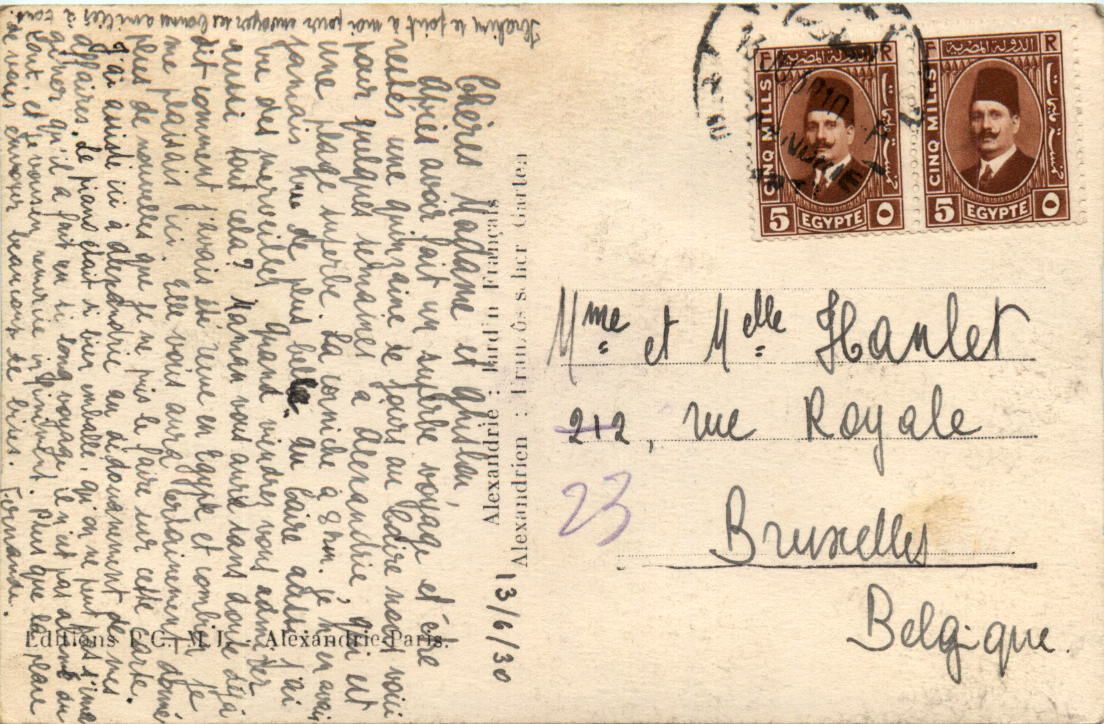 Chères Madame et Ghislau,
Après avoir fait un superbe voyage et être
restés une quinzaine de jours au Caire nous voici
pour quelques semaines à Alexandrie, qui est
une plage superbe. La corniche à 8 km. je n'en avais
jamais vue de plus belle. Au Caire aussi j'ai
vu des merveilles. Quand viendrez vous admirer
aussi tout cela? Maman vous aura sans doute déjà
dit comment j'avais été reine en Egypte et combien je
me plaisais ici. Elle vous aura certainement donné
plus de nouvelles que je ne puis le faire sur cette carte.
J'ai assisté ici à Alexandrie au dédouanement de mes
affaires. Le piano était si bien emballé, qu'on ne peut pas s'ima
giner qu'il a fait un si long voyage, il n'est pas abîmé du
tout, et je vous en remercie infiniment. Plus que la place
de vous envoyer beaucoup de bises. Fernande.
Ibrahim se joint à moi pour envoyer ses bonnes amitiés à tous
13/6/30
Alexandrie : Jardin Français
Alexandrien : Französischer Garten
Editions P.C., M.J. - Alexandrie-Paris.
F R
الدولة المصرية
CINQ MILLS
خمسة مليمات
5 EGYPTE ٥
F R
الدولة المصرية
CINQ MILLS
خمسة مليمات
5 EGYPTE ٥
Mme et Melle Hanlet
212, rue Royale
23
Bruxelles
Belgique.